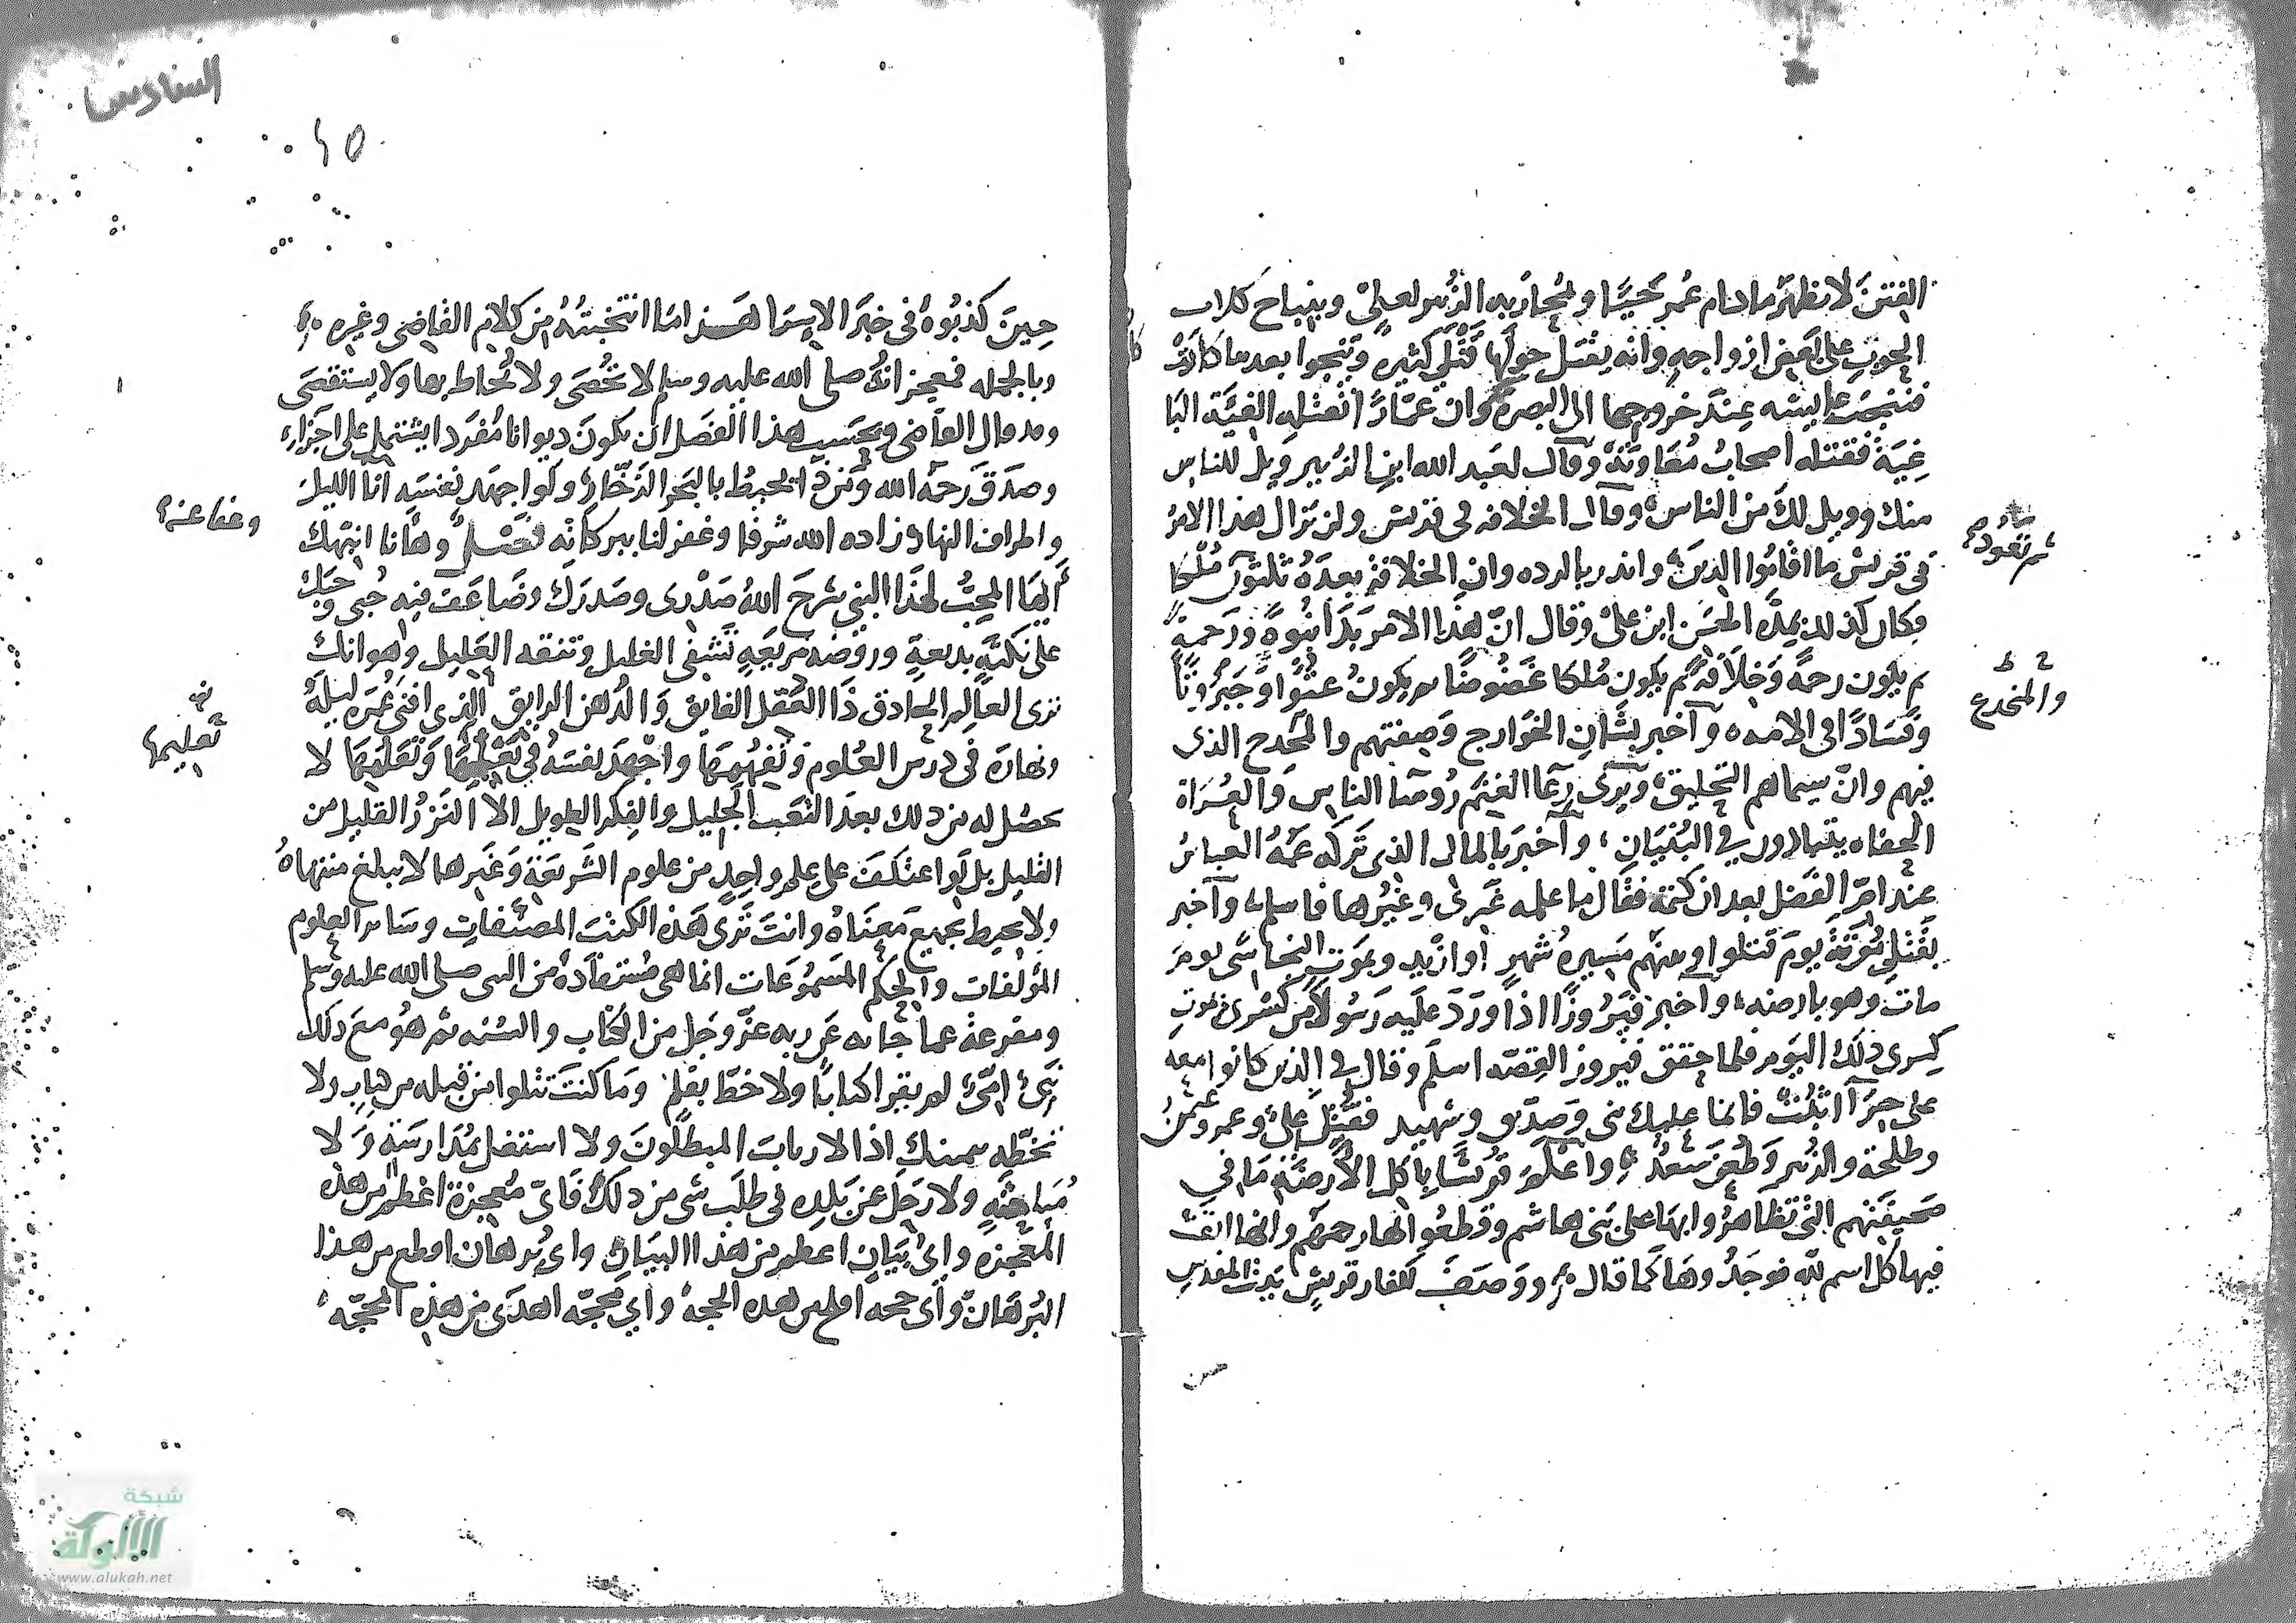 الفتن لا تظهر ما دام عمر حيا وبمحاربه الزبير لعلي وبنباح كلاب
الحوب على بعض ازواجه وانه يقتل حولها قتلى كثيره وتنجوا بعد ما كادت
فنبحت عاليشه عند خروجها الى البصره وان عمارا تقتله الفية البا
غية فقتله اصحاب معاوية وقال لعبد الله ابن الزبير ويل للناس
منك وويل لك من الناس وقال الخلافه في قريش ولن تزال هذا الامر
في قريش ما اقاموا الدين واندر بالرده وان الخلافة بعده ثلثون
فكان كذلك بمده الحسن ابن علي وقال ان هذا الامر بدا نبوة ورحمة
ثم يكون رحمة وخلافة ثم يكون ملكا عضوضا ثم يكون عتوا وجبروتا
وفسادا في الامه واخبر بشان الخوارج وصفتهم والمخدج الذى
فيهم وان سيماهم التحليق ويرى رعا الغنم روسا الناس والعراة
الحفاه يتبارون في البنيان واخبر بالمال الذي تركه عمه العباس
عند ام الفضل بعد ان كتمه فقال ما علمه غيري وغيرها فاسلم واخبر
بقتل موتة يوم قتلوا وبينهم مسيره شهر او ازيد وبموت النجاشى يوم
مات وهو بارضه واخبر فيروزا اذا ورد عليه رسولا من كسرى بموت
كسرى ذلك اليوم فلما حقق فيروز القصه اسلم وقال في الذين كانوا معه
على حرآ اثبت فانما عليك نبى وصديق وشهيد فقتل علي وعمر وعثمن
وطلحة والزبير وطعن سعد واعلم قريشا باكل الارضة ما في
صحيفتهم التي تظاهروا بها على بنى هاشم وقطعوا بها رحمهم وانها ابقت
فيها كل اسم لله فوجدوها كما قال ووصف لكفار قريش بيت المقدس
ثم تعود
والمخدع
السادس
٤٥
حين كذبوه في خبر الاسرا هذا ما انتخبته من كلام القاضي وغيره
وبالجمله فمعجزاته صلى الله عليه وسلم لا تحصى ولا تحاط بها ولا يستقصى
وقد قال القاضى وبحسب هذا الفصل ان يكون ديوانا مفردا يشتمل على اجزاء
وصدق رحمه الله ومن ذا يحيط بالبحر الزخار ولو اجهد نفسه انا الليل
واطراف النهار زاده الله شرفا وغفر لنا ببركاته فصل وها انا انبهك
ايها المحب لهذا النبي شرح الله صدرى وصدرك وضاعف فيه حبى وحبك
على نكتة بديعة وروضه مربعة تشفى الغليل وتنفقه العليل وهو انك
ترى العالم الحادق ذا العقل الفايق والذهن الرايق الذي افنى عمره ليله
ونهاره في درس العلوم وتفهيمها واجهد نفسه في تعلمها وتعليمها لا
يحصل له من ذلك بعد التعب الجليل والفكر الطويل الا النزر القليل من
القليل بل لو اعتكف على علم واحد من علوم الشريعة وغيرها لا يبلغ منتهاه
ولا يحيط بجميع معناه وانت ترى هذه الكتب المصنفات وساير العلوم
المؤلفات والحكم المسموعات انما هى مستفادة من النبى صلى الله عليه وسلم
ومفرعة عما جا به عن ربه عز وجل من الكتاب والسنه ثم هو مع ذلك
نبى امى لم يقرا كتابا ولا خط بقلم وما كنت تتلوا من قبله من كتاب ولا
تخطه بيمينك اذا لارتاب المبطلون ولا استغل بمدارسة ولا
مباحثه ولا رحل عن بلده في طلب شى من ذلك فاى معجزة اعظم من هذه
المعجزه واى بيان اعظم من هذا البيان واى برهان اقطع من هذا
البرهان واى حجه افلج من هذه الحجه واى محجه اهدى من هذه المحجه
وعفا عنه
تعليمها
شبكة
الألوكة
www.alukah.net